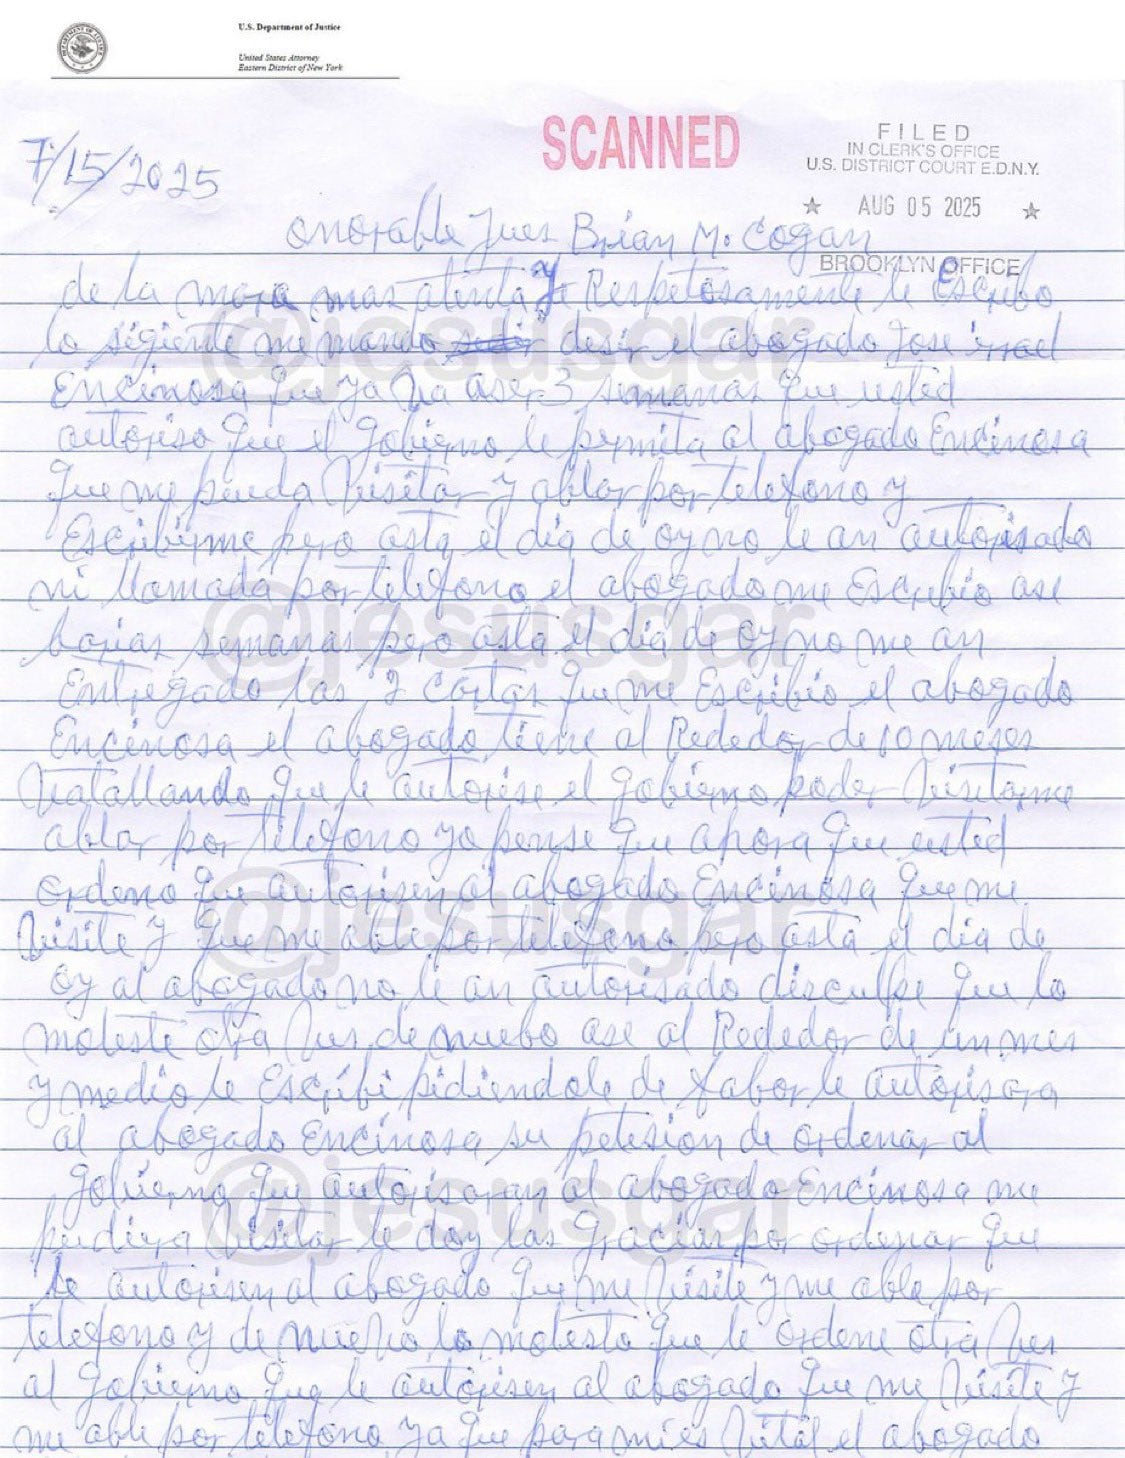 U.S. Department of Justice
United States Attorney
Eastern District of New York
SCANNED
FILED
IN CLERK'S OFFICE
U.S. DISTRICT COURT E.D.N.Y.
★ AUG 05 2025 ★
BROOKLYN OFFICE
7/15/2025
onorable Jues Brian M. Cogan
de la mara mas atenta y Respetosamente le Escribo
lo sigiente me mando desir el abogado Jose isrrael
Encinosa que ya ba aser 3 semanas que usted
autoriso que el gobierno le permita al abogado Encinosa
que me pueda Visitar y ablar por telefono y
Escribirme pero asta el dia de oy no le an autorisado
ni llamada por telefono el abogado me Escribio ase
barias semanas pero asta el dia de oy no me an
Entregado las 2 cartas que me Escribio el abogado
Encinosa el abogado tiene al Rededor de 10 meses
Vatallando que le autorise el gobierno poder Visitarme
ablar por telefono yo pense que ahora que usted
ordeno que autorisen al abogado Encinosa que me
Visite y que me able por telefono pero asta el dia de
oy al abogado no le an autorisado disculpe que lo
moleste otra Ves de nuebo ase al Rededor de un mes
y medio le Escribi pidiendole de fabor le autorisara
al abogado Encinosa su petision de ordenar al
gobierno que autorisaran al abogado Encinosa me
pudiera Visitar le doy las gracias por ordenar que
le autorisen al abogado que me Visite y me able por
telefono y de nuevo lo molesto que le ordene otra Ves
al gobierno que le autorisen al abogado que me Visite y
me able por telefono ya que para mi es Vital el abogado
@jesusgar
@jesusgar
@jesusgar
@jesusgar